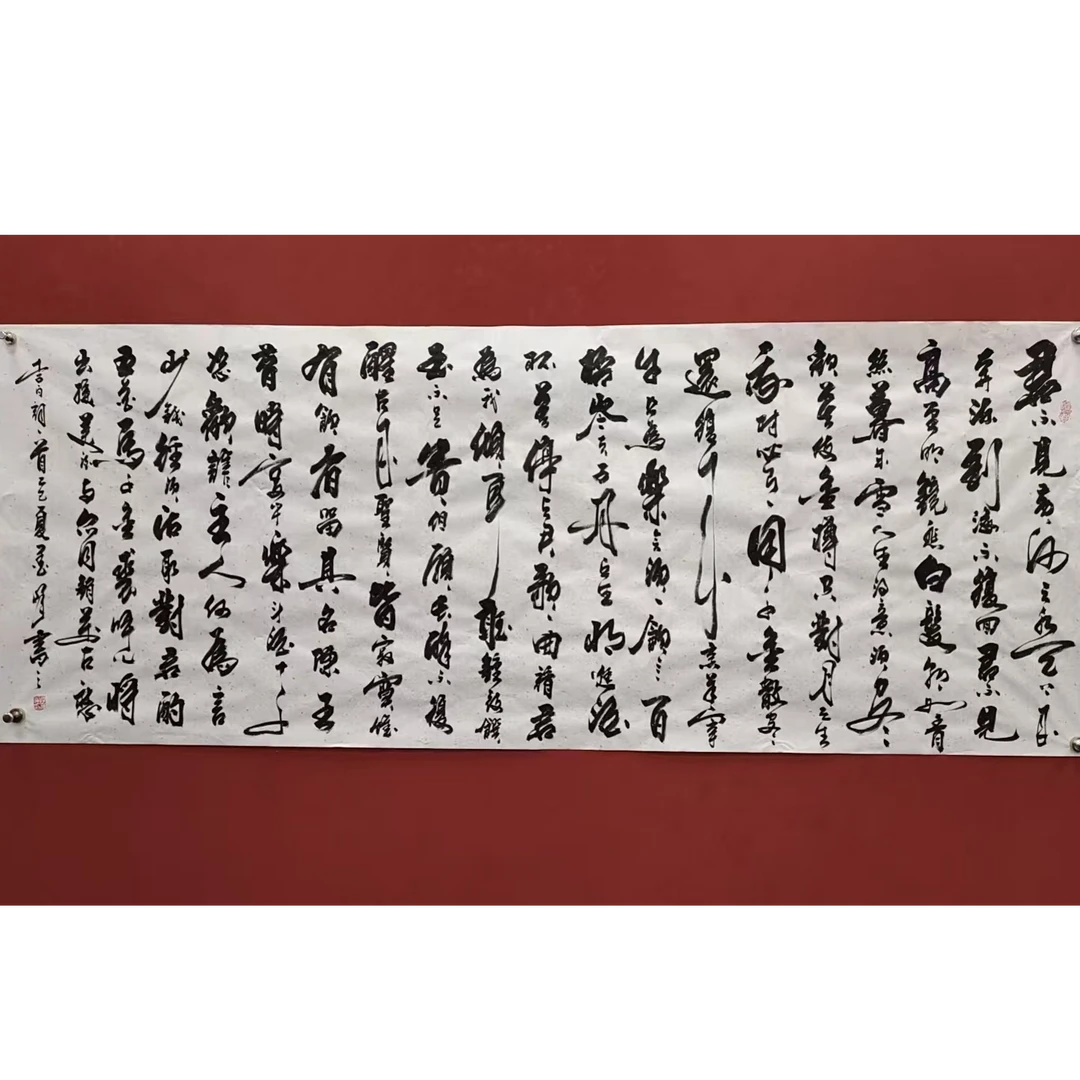 君不見黃河之水天上來
奔流到海不復回君不見
高堂明鏡悲白髮朝如青
絲暮成雪人生得意須盡
歡莫使金樽空對月天生
我材必有用千金散盡
還復來烹羊宰
牛且為樂會須一飲三百
杯岑夫子丹丘生將進酒
杯莫停與君歌一曲請君
為我傾耳聽鐘鼓饌
玉不足貴但願長醉不復
醒古來聖賢皆寂寞惟
有飲者留其名陳王
昔時宴平樂斗酒十千
恣歡謔主人何為言
少錢徑須沽取對君酌
五花馬千金裘呼兒將
出換美酒與爾同銷萬古愁
李白詩一首乙巳夏書